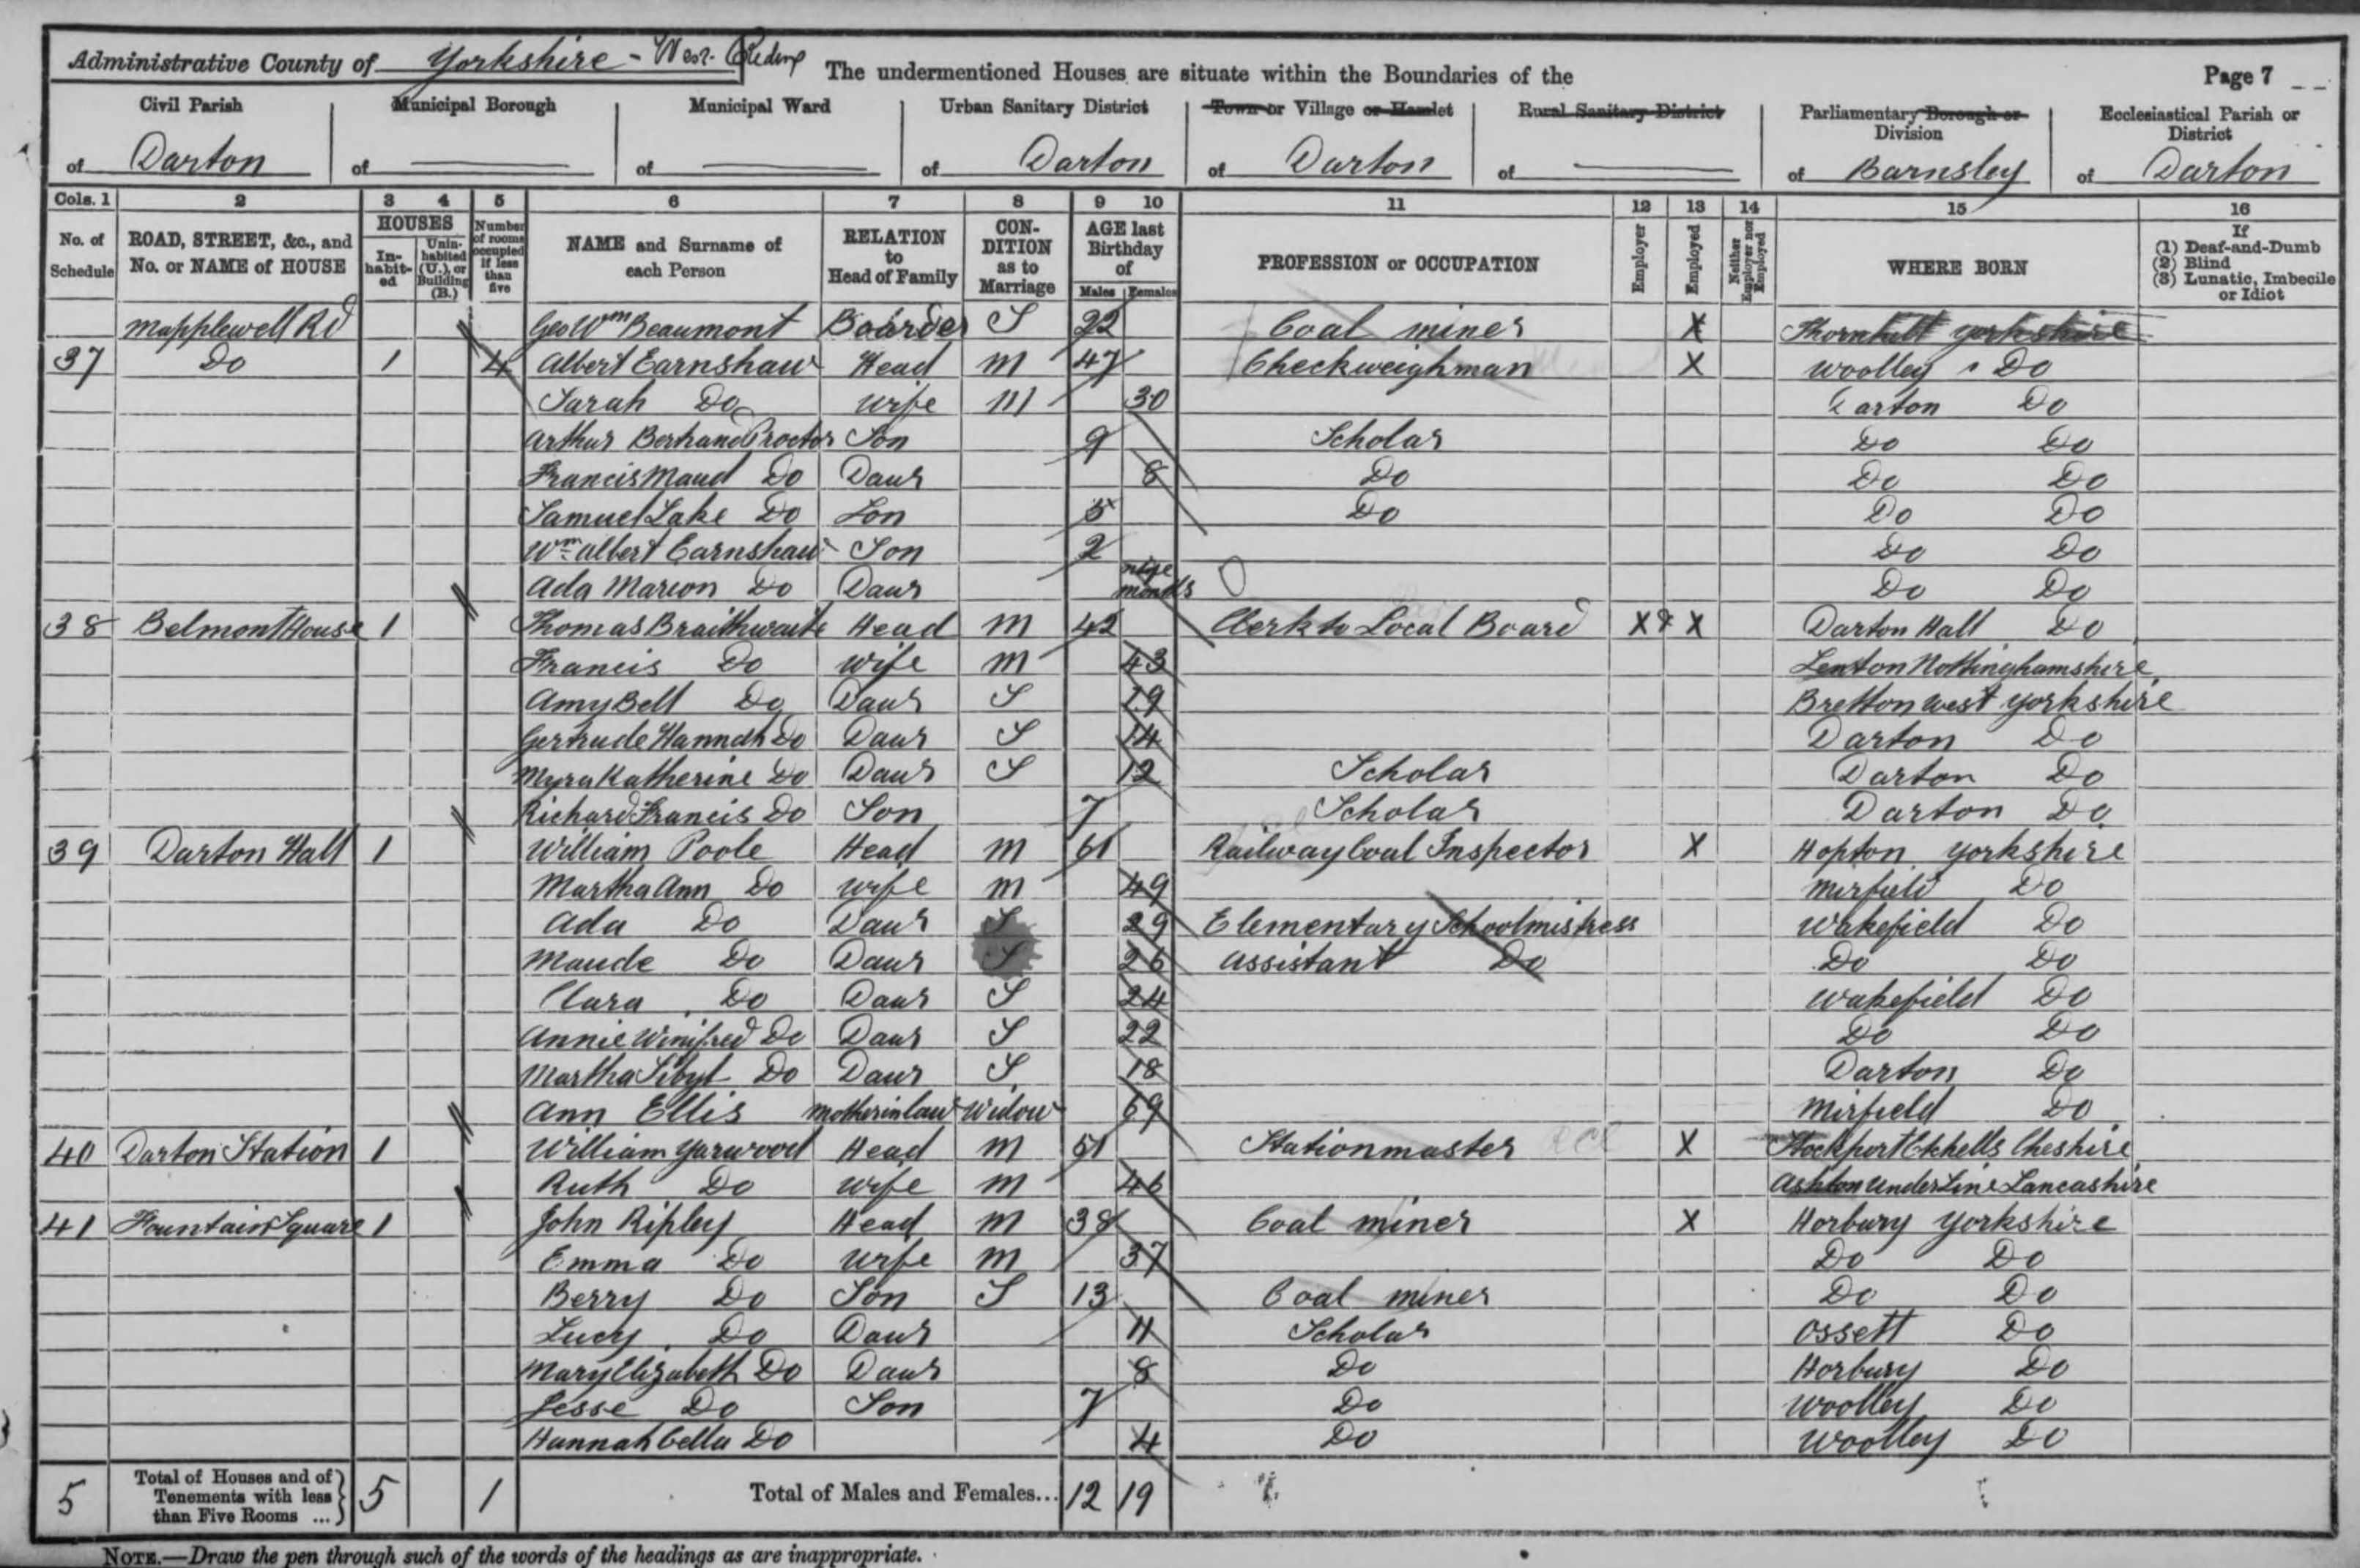 Administrative County of Yorkshire - West Riding The undermentioned Houses are situate within the Boundaries of the Page 7
Civil Parish Municipal Borough Municipal Ward Urban Sanitary District Town or Village or Hamlet Rural Sanitary District Parliamentary Borough or Division Ecclesiastical Parish or District
of Darton of of of Darton of Darton of of Barnsley of Darton
Cols. 1 2 3 4 5 6 7 8 9 10 11 12 13 14 15 16
No. of Schedule ROAD, STREET, &c., and No. or NAME of HOUSE HOUSES In-habit-ed Unin-habited (U.), or Building (B.) Number of rooms occupied if less than five NAME and Surname of each Person RELATION to Head of Family CON-DITION as to Marriage AGE last Birthday of Males Females PROFESSION or OCCUPATION Employer Employed Neither Employer nor Employed WHERE BORN If (1) Deaf-and-Dumb (2) Blind (3) Lunatic, Imbecile or Idiot
Mapplewell Rd Geo Wm Beaumont Boarder S 22 Coal miner X Thornhill Yorkshire
37 Do 1 4 Albert Earnshaw Head M 47 Checkweighman X Woolley Do
Sarah Do wife M 30 Darton Do
Arthur Bertrand Proctor Son 9 Scholar Do Do
Francis Maud Do Daur 8 Do Do Do
Samuel Lake Do Son 5 Do Do Do
Wm Albert Earnshaw Son 2 Do Do
Ada Marion Do Daur months Do Do
38 Belmont House 1 Thomas Braithwaite Head M 42 Clerk to Local Board X & X Darton Hall Do
Francis Do wife M 43 Lenton Nottinghamshire
Amy Bell Do Daur S 19 Bretton West Yorkshire
Gertrude Hannah Do Daur S 14 Darton Do
Myra Katherine Do Daur S 12 Scholar Darton Do
Richard Francis Do Son 7 Scholar Darton Do
39 Darton Hall 1 William Poole Head M 61 Railway Coal Inspector X Hopton Yorkshire
Martha Ann Do wife M 49 Mirfield Do
Ada Do Daur S 29 Elementary Schoolmistress Wakefield Do
Maude Do Daur S 26 Assistant Do Do Do
Clara Do Daur S 24 Wakefield Do
Annie Winifred Do Daur S 22 Do Do
Martha Sibyl Do Daur S 18 Darton Do
Ann Ellis Mother in law Widow 69 Mirfield Do
40 Darton Station 1 William Yarwood Head M 51 Stationmaster X Stockport Etchells Cheshire
Ruth Do wife M 46 Ashton Under Line Lancashire
41 Fountain Square 1 John Ripley Head M 38 Coal miner X Horbury Yorkshire
Emma Do wife M 37 Do Do
Berry Do Son S 13 Coal miner Do Do
Lucy Do Daur 11 Scholar Ossett Do
Mary Elizabeth Do Daur 8 Do Horbury Do
Jesse Do Son 7 Do Woolley Do
Hannah Cella Do 4 Do Woolley Do
5 Total of Houses and of Tenements with less than Five Rooms ... 5 1 Total of Males and Females... 12 19
NOTE.—Draw the pen through such of the words of the headings as are inappropriate.